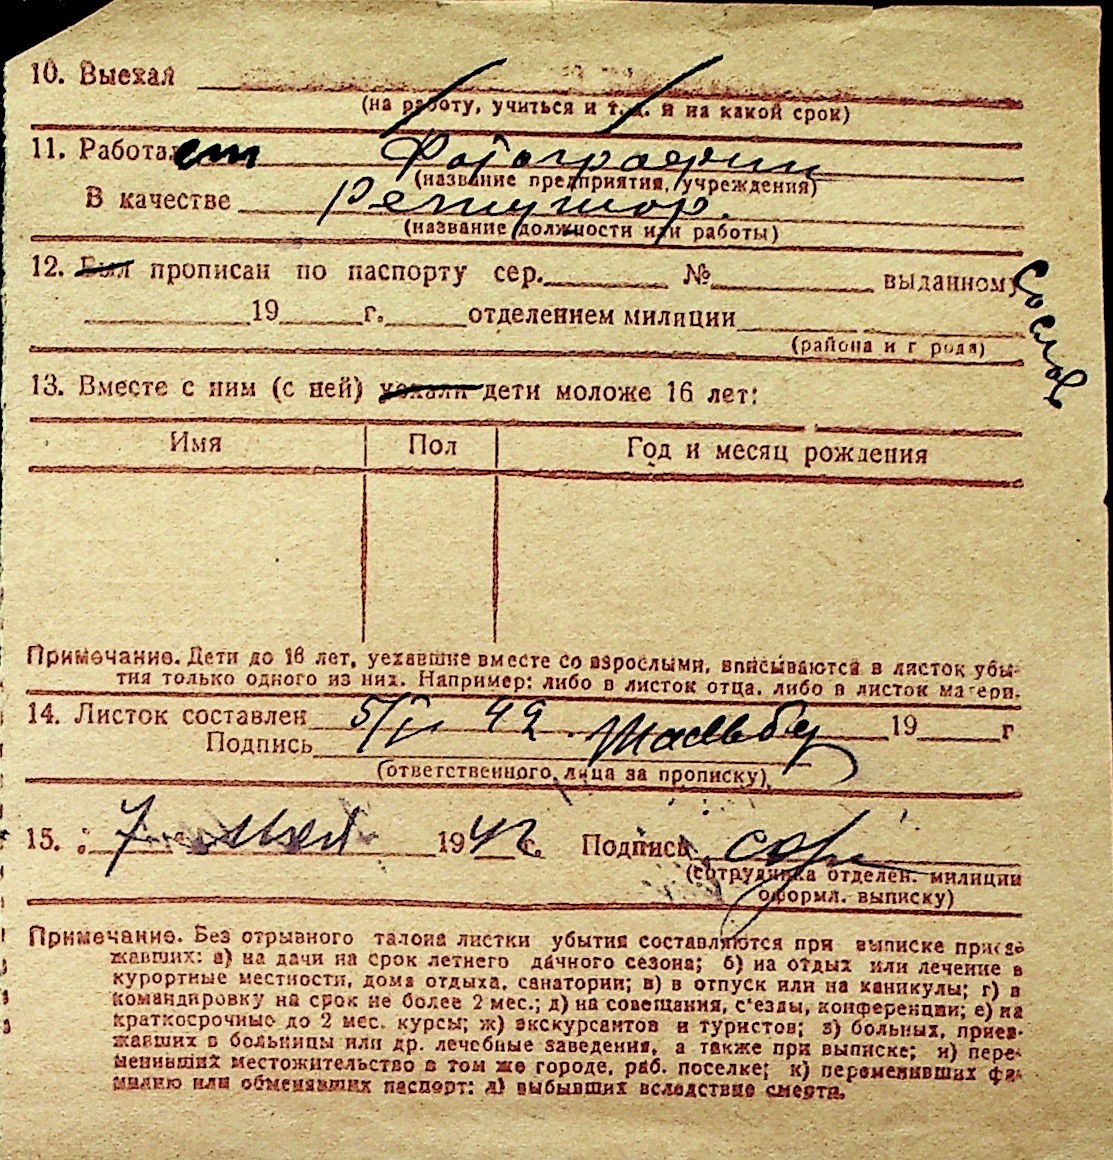 10. Выехал
(на работу, учиться и т. д. и на какой срок)
11. Работает Фотографии
(название предприятия, учреждения)
В качестве Ретушор.
(название должности или работы)
12. Был прописан по паспорту сер. № выданному
19 г. отделением милиции
(района и г рода)
13. Вместе с ним (с ней) уехали дети моложе 16 лет:
Имя Пол Год и месяц рождения
Примечание. Дети до 16 лет, уехавшие вместе со взрослыми, вписываются в листок убы-
тия только одного из них. Например: либо в листок отца, либо в листок матери.
14. Листок составлен 5/V 42 19 г
Подпись
(ответственного лица за прописку)
15. " 7 " мая 1942 г. Подпись
(сотрудника отделен. милиции
оформл. выписку)
Примечание. Без отрывного талона листки убытия составляются при выписке приез-
жавших: а) на дачи на срок летнего дачного сезона; б) на отдых или лечение в
курортные местности, дома отдыха, санатории; в) в отпуск или на каникулы; г) в
командировку на срок не более 2 мес.; д) на совещания, с'езды, конференции; е) на
краткосрочные до 2 мес. курсы; ж) экскурсантов и туристов; з) больных, приез-
жавших в больницы или др. лечебные заведения, а также при выписке; и) пере-
менивших местожительство в том же городе, раб. поселке; к) переменивших фа-
милию или обменявших паспорт; л) выбывших вследствие смерти.